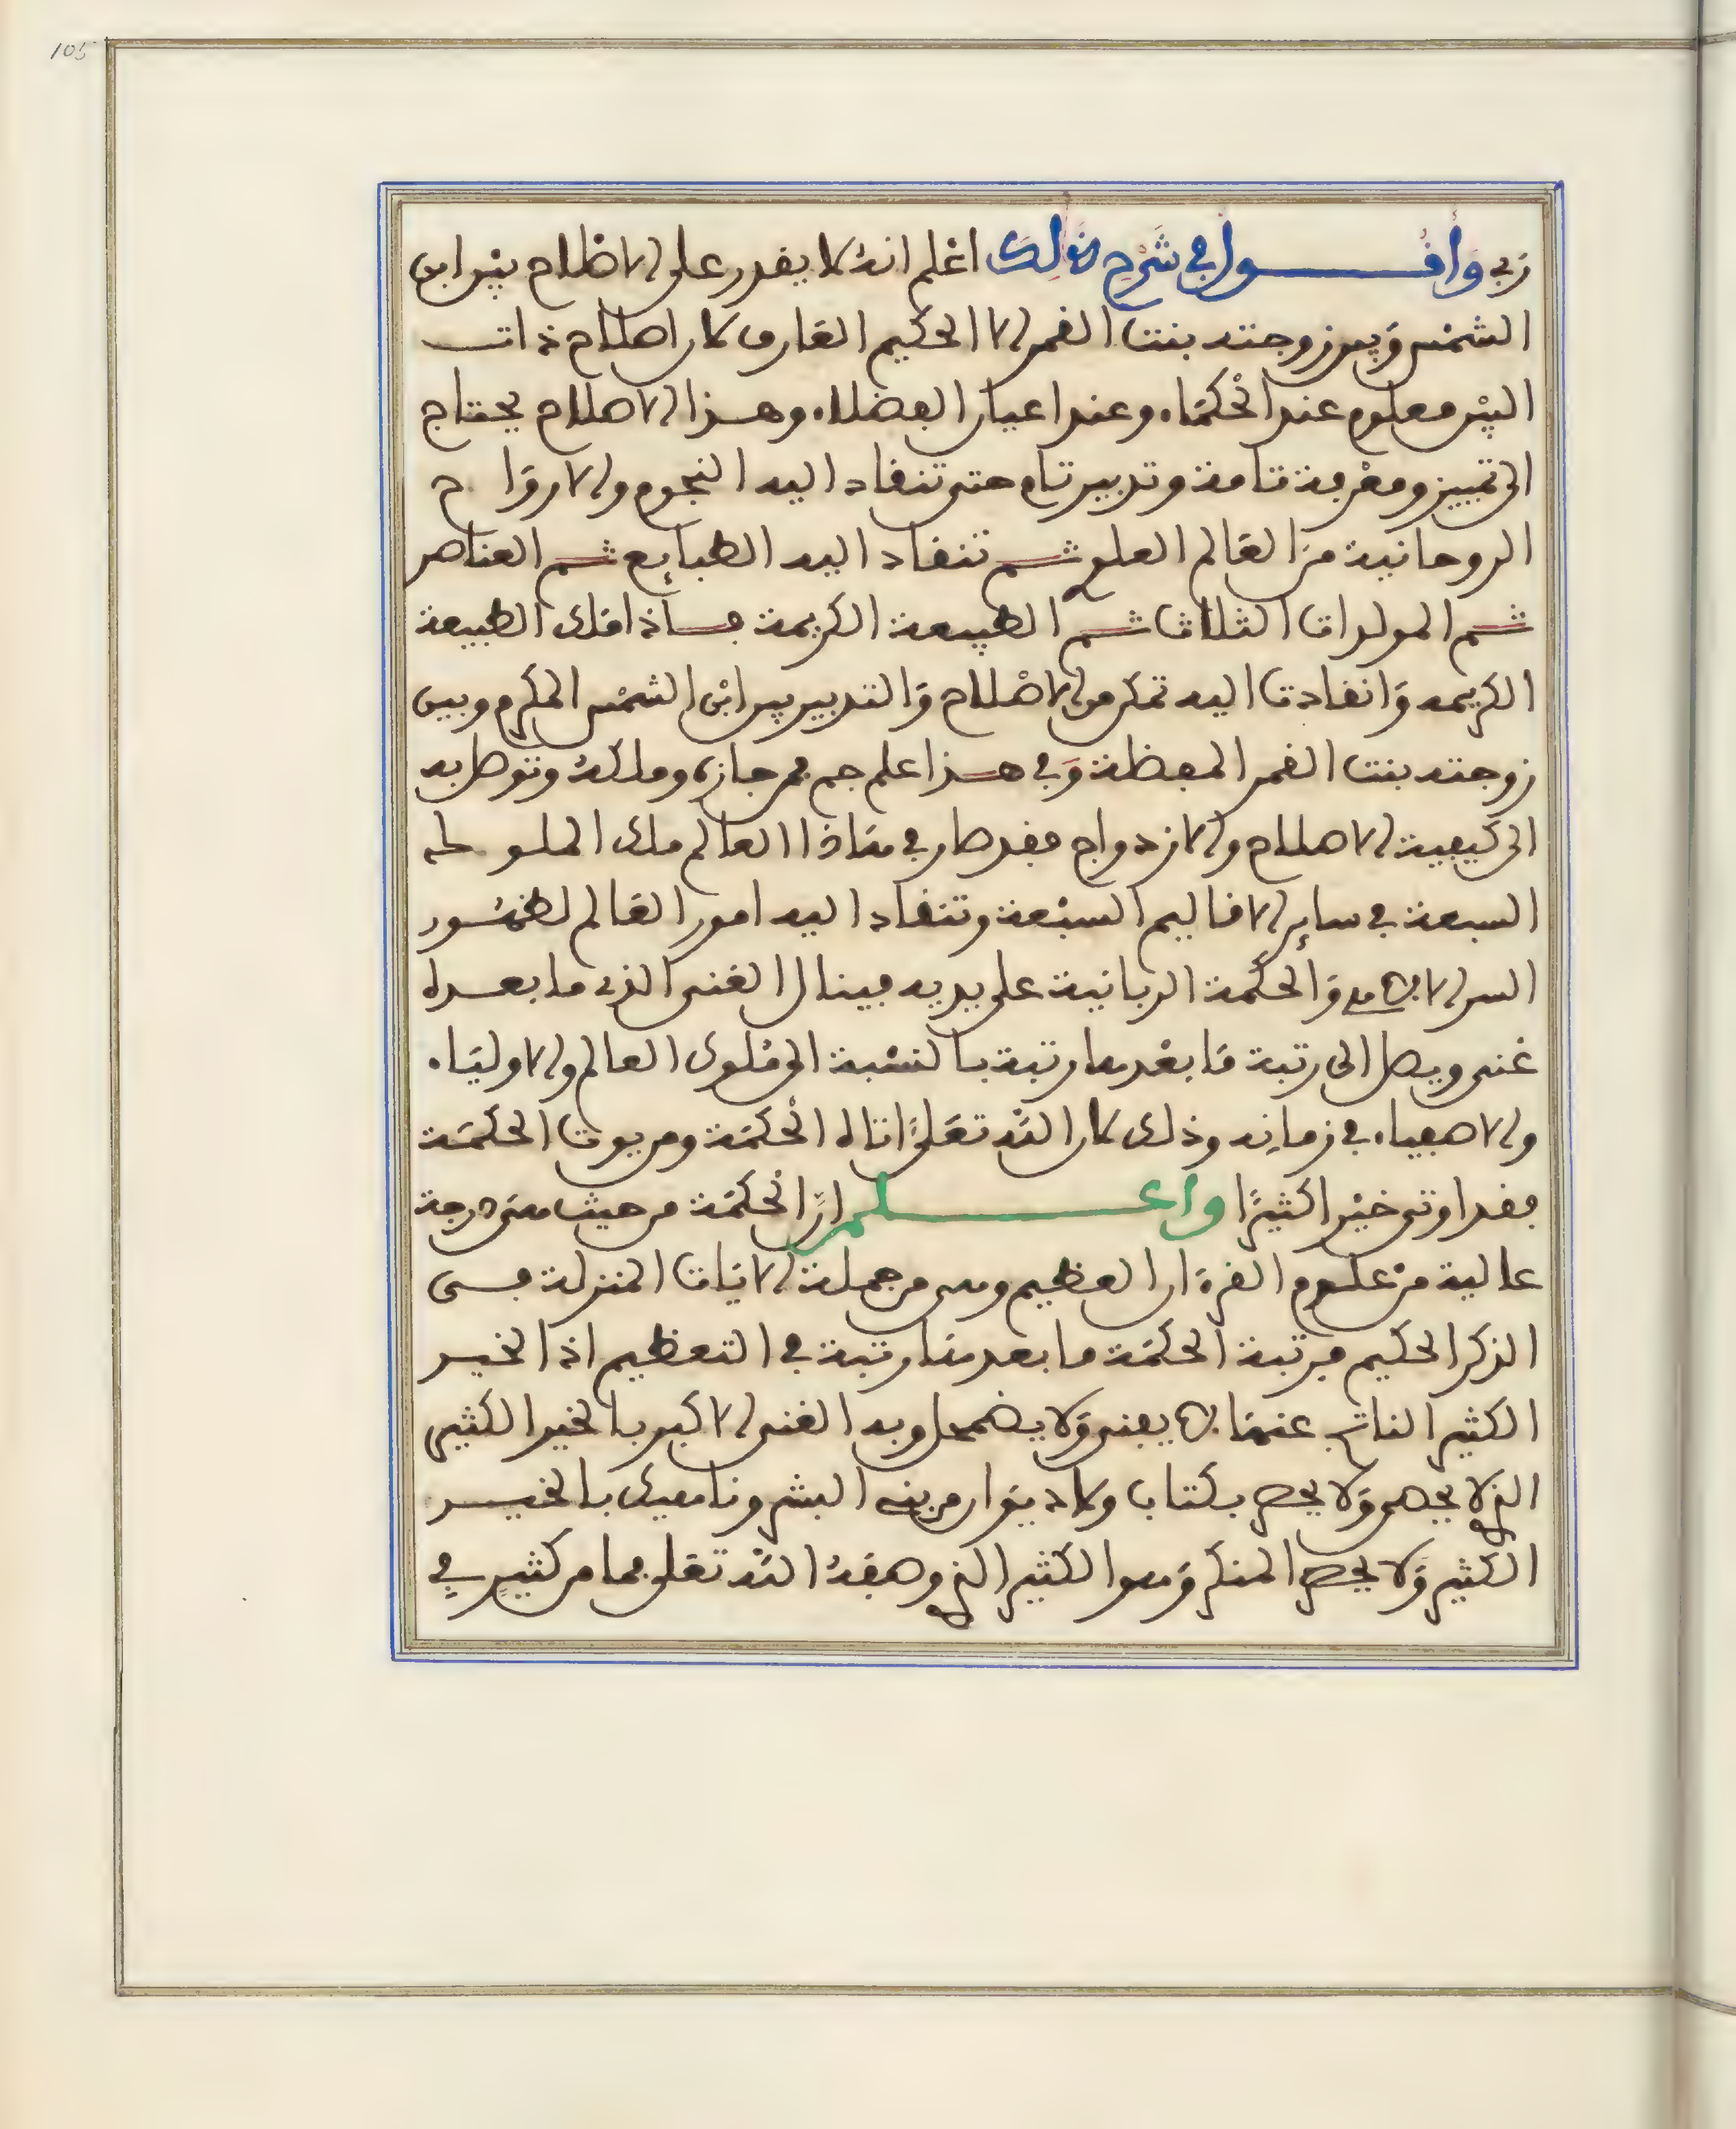 105
زبي وأقـول في شرح ذلك اعلم انه لا يقدر على الاصلاح بين ابن
الشمس وبين زوجته بنت القمر الا الحكيم العارف لان اصلاح ذات
البين معلوم عند الحكماء وعند اعيان الفضلاء وهذا الاصلاح يحتاج
الى تمييز ومعرفة تامة وتدبير تام حتى تنقاد اليه النجوم والارواح
الروحانية من العالم العلوي ثم تنقاد اليه الطبايع ثم العناصر
ثم المولدات الثلاث ثم الطبيعة الكريمة فاذا ملك الطبيعة
الكريمه وانقادت اليه تمكن من الاصلاح والتدبير بين ابن الشمس المكرم وبين
زوجته بنت القمر المعظمة وفي هذا علم جم فمن حازه وملكه وتوصل به
الى كيفية الاصلاح والازدواج فقد صار في هاذا العالم ملك الملوك
السبعة في ساير الاقاليم السبعة وتنقاد اليه امور العالم لظهور
السر الالاهي والحكمة الربانية على يديه فينال الغنى الذي ما بعده
غنى ويصل الى رتبة ما بعدها رتبة بالنسبة الى ملوك العالم والاولياء
والاصفياء في زمانه وذلك لان الله تعلى اتاه الحكمة ومن يوت الحكمة
فقد اوتى خيرا كثيرا واعـلم ان الحكمة من حيث هى درجة
عالية من علوم القرءان العظيم وهى من جملة الايات المنزلة فى
الذكر الحكيم فرتبة الحكمة ما بعدها رتبة في التعظيم اذ الخير
الكثير الناتج عنها لا يفنى ولا يضمحل وبه الغنى الاكبر بالخير الكثير
الذي لا يحصى ولا يحصر بكتاب ولا ديوان من بنى البشر وناهيك بالخير
الكثير ولا يحصر المنكر وهو الكثير الذي وصفه الله تعلى بما من كثير في